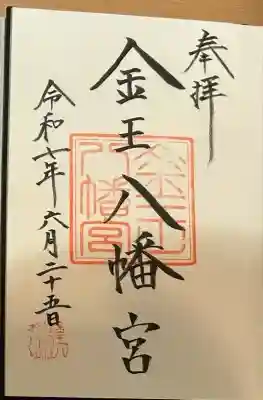 奉拝
金王八幡宮
令和七年六月二十五日
金王八幡宮